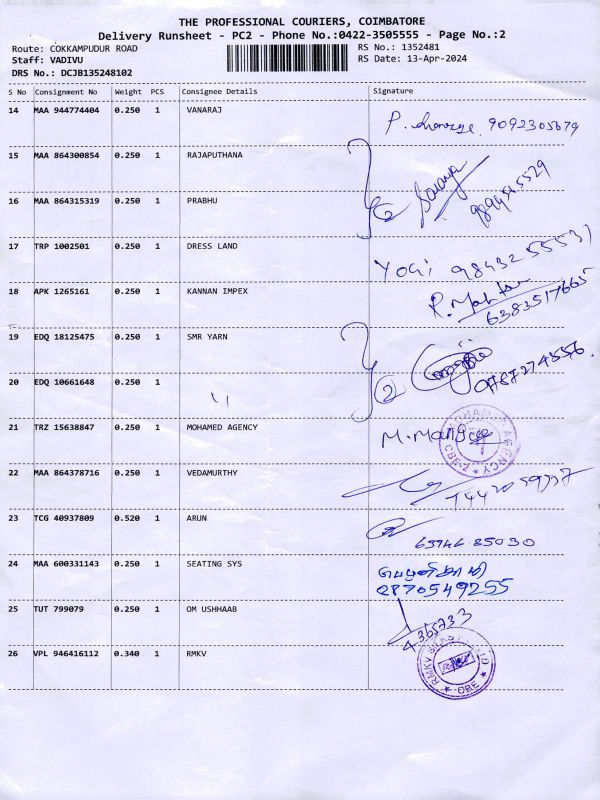 THE PROFESSIONAL COURIERS, COIMBATORE
Delivery Runsheet - PC2 - Phone No.:0422-3505555 - Page No.:2
Route: COKKAMPUDUR ROAD RS No.: 1352481
Staff: VADIVU RS Date: 13-Apr-2024
DRS No.: DCJB135248102
S No Consignment No Weight PCS Consignee Details Signature
14 MAA 944774404 0.250 1 VANARAJ 9092305679
15 MAA 864300854 0.250 1 RAJAPUTHANA
16 MAA 864315319 0.250 1 PRABHU
17 TRP 1002501 0.250 1 DRESS LAND YOGI
18 APK 1265161 0.250 1 KANNAN IMPEX 6383517665
19 EDQ 18125475 0.250 1 SMR YARN
20 EDQ 10661648 0.250 1 2
21 TRZ 15638847 0.250 1 MOHAMED AGENCY
22 MAA 864378716 0.250 1 VEDAMURTHY
23 TCG 40937809 0.520 1 ARUN
24 MAA 600331143 0.250 1 SEATING SYS
25 TUT 799079 0.250 1 OM USHHAAB
26 VPL 946416112 0.340 1 RMKV